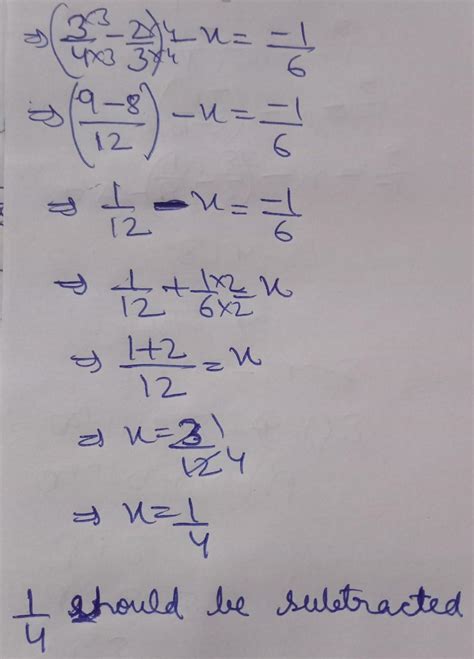 ⇒ (3×3/4×3 - 2×4/3×4) - x = -1/6
⇒ (9-8/12) - x = -1/6
⇒ 1/12 - x = -1/6
⇒ 1/12 + 1×2/6×2 x
⇒ 1+2/12 = x
⇒ x = 3 1/12 4
⇒ x = 1/4
1/4 should be subtracted